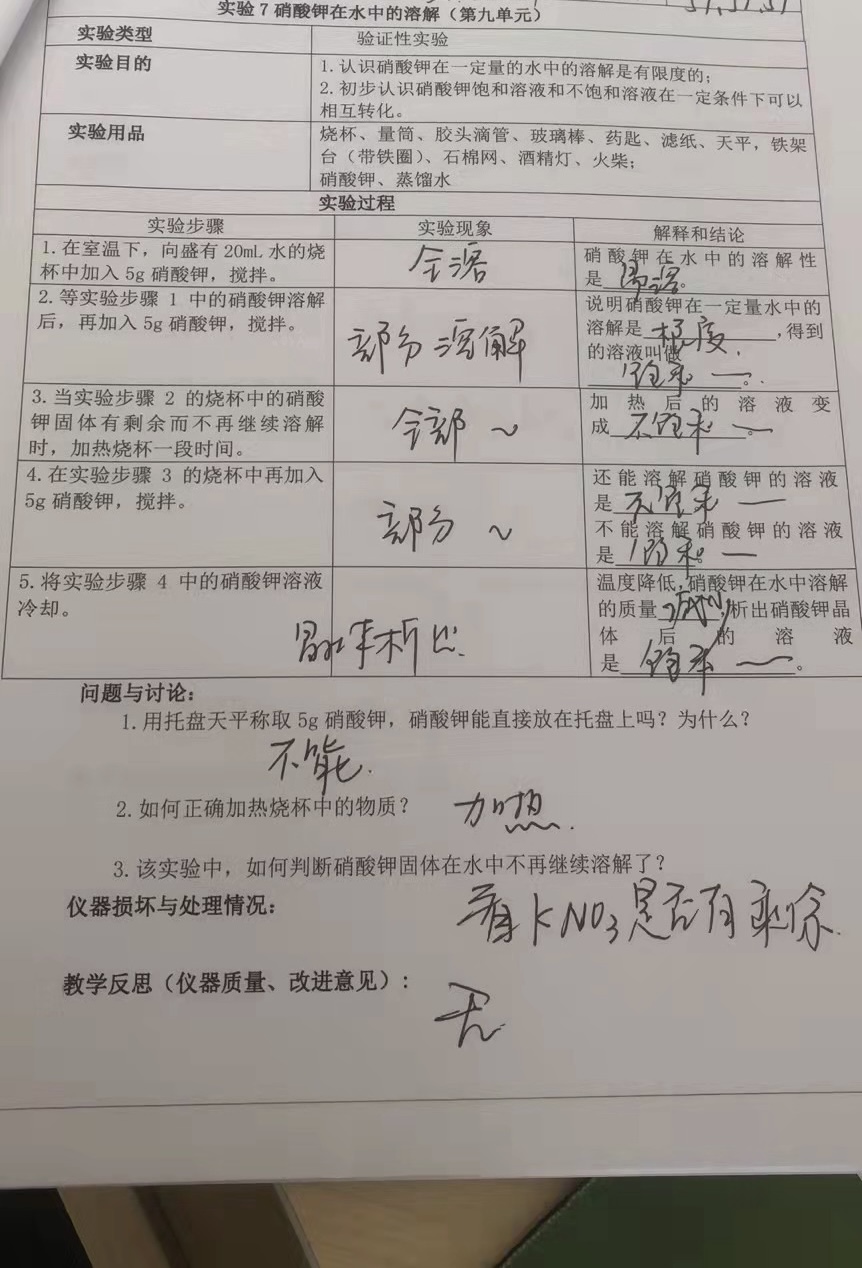 实验7 硝酸钾在水中的溶解（第九单元）
实验类型
验证性实验
实验目的
1.认识硝酸钾在一定量的水中的溶解是有限度的；
2.初步认识硝酸钾饱和溶液和不饱和溶液在一定条件下可以
相互转化。
实验用品
烧杯、量筒、胶头滴管、玻璃棒、药匙、滤纸、天平，铁架
台（带铁圈）、石棉网、酒精灯、火柴；
硝酸钾、蒸馏水
实验过程
实验步骤
实验现象
解释和结论
1.在室温下，向盛有20mL水的烧
杯中加入5g硝酸钾，搅拌。
全溶
硝酸钾在水中的溶解性
是易溶。
2.等实验步骤 1 中的硝酸钾溶解
后，再加入5g硝酸钾，搅拌。
部分溶解
说明硝酸钾在一定量水中的
溶解是 限度 ,得到
的溶液叫做
饱和 一。
3.当实验步骤 2 的烧杯中的硝酸
钾固体有剩余而不再继续溶解
时，加热烧杯一段时间。
全部 ～
加热后的溶液变
成 不饱和 ～。
4.在实验步骤 3 的烧杯中再加入
5g硝酸钾，搅拌。
部分 ～
还能溶解硝酸钾的溶液
是 不饱和 一
不能溶解硝酸钾的溶液
是 饱和。一
5.将实验步骤 4 中的硝酸钾溶液
冷却。
晶体析出.
温度降低,硝酸钾在水中溶解
的质量 减小 ,析出硝酸钾晶
体后的溶液
是 饱和 ～。
问题与讨论：
1.用托盘天平称取5g硝酸钾，硝酸钾能直接放在托盘上吗？为什么？
不能.
2.如何正确加热烧杯中的物质？ 加热.
3.该实验中，如何判断硝酸钾固体在水中不再继续溶解了？
仪器损坏与处理情况：
看KNO3是否有剩余.
教学反思（仪器质量、改进意见）：
无.